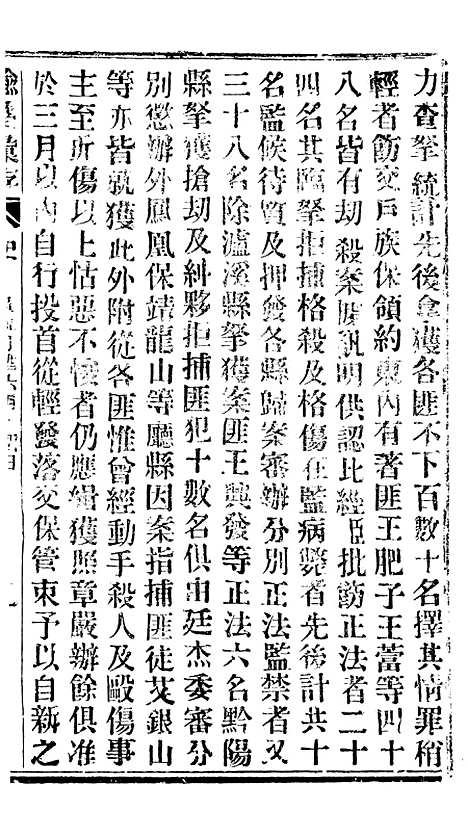 力查拏統計先後拿獲各匪不下百數十名擇其情罪稍
輕者飭交戶族保領約束內有著匪王肥子王蕾等四十
八名皆有劫殺案據訊明供認比經臣批飭正法者二十
四名其臨拏拒捕格殺及格傷在監病斃者先後計共十
名監候待質及押發各縣歸案審辦分別正法監禁者又
三十八名除瀘溪縣拏獲案匪王興發等正法六名黔陽
縣拏獲搶劫及糾夥拒捕匪犯十數名俱由廷杰委審分
別懲辦外鳳凰保靖龍山等廳縣因案指捕匪徒艾銀山
等亦皆就獲此外附從各匪惟曾經動手殺人及毆傷事
主至折傷以上怙惡不悛者仍應緝獲照章嚴辦餘俱准
於三月以內自行投首從輕發落交保管束予以自新之
諭摺彙存